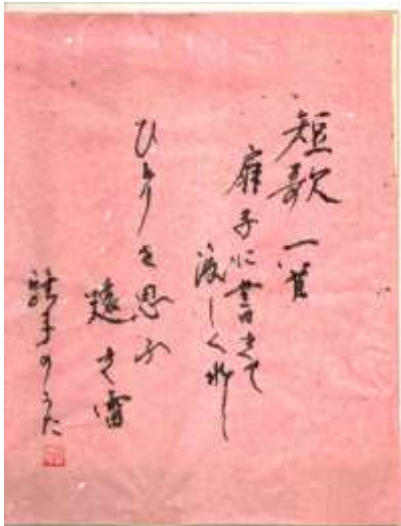 短歌一首
扇子に書きて
渡しくれし
ひとりを思ふ
遠き雷
子のうた